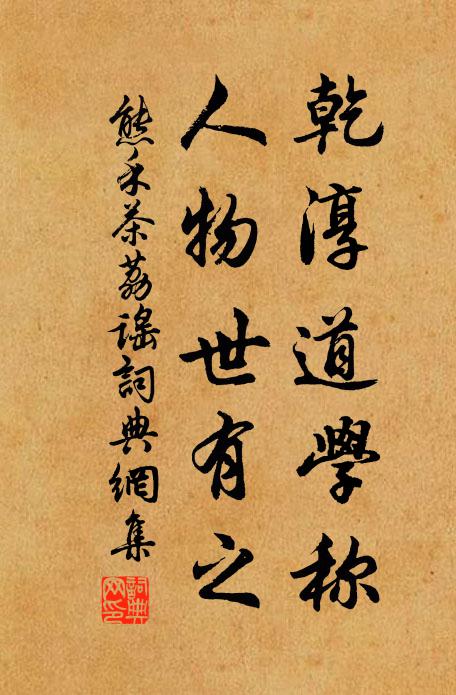 乾淳道學称
人物世有之
熊禾茶荔謠詞典網集
詞典网印